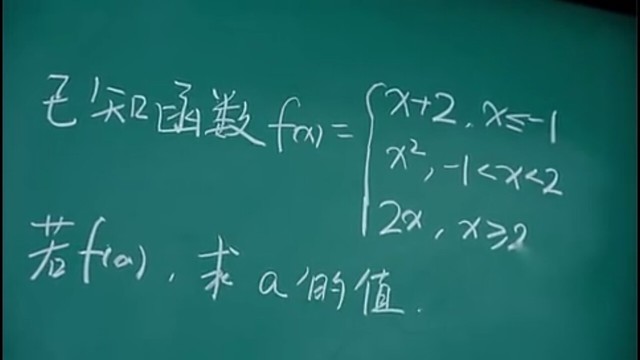 已知函数 f(x) = { x+2, x≤-1
x², -1<x<2
2x, x≥2
若f(a), 求 a 的值.